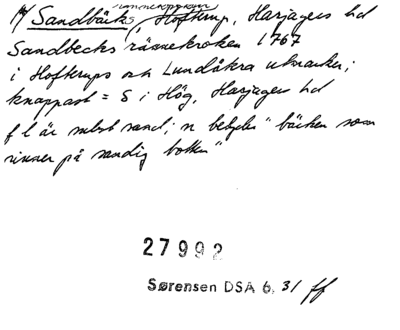 Sandbäck, Hofterup, Harjagers hd
Sandbecks rännekroken 1767
i Hofterups och Lundåkra utmarker;
knappast = S i Hög, Harjagers hd
f l är subst sand; n betyder "bäcken som
rinner på sandig botten"
27992
Sørensen DSA 6, 31 ff